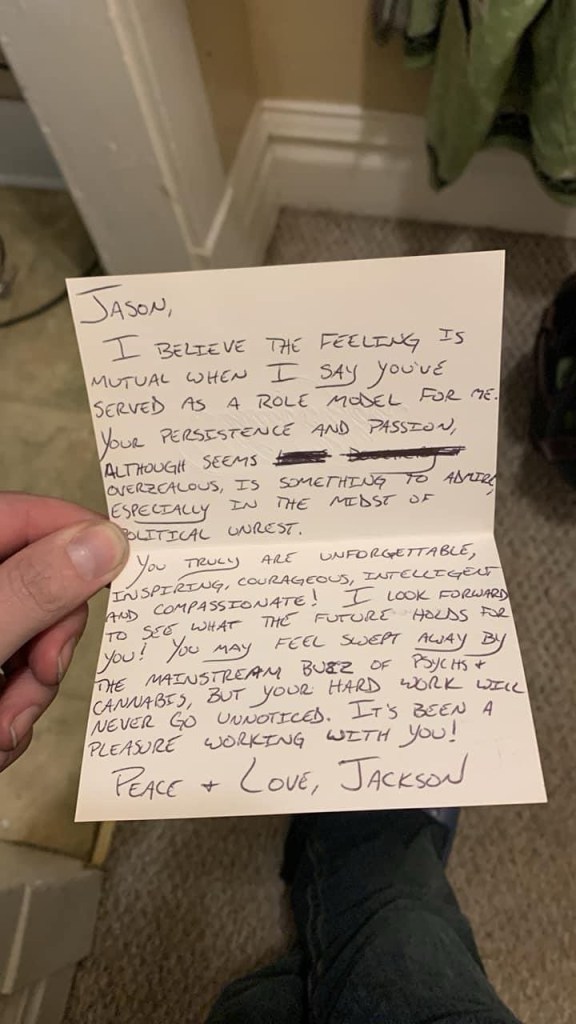 JASON,
I BELIEVE THE FEELING IS
MUTUAL WHEN I SAY YOU'VE
SERVED AS A ROLE MODEL FOR ME.
YOUR PERSISTENCE AND PASSION,
ALTHOUGH SEEMS
OVERZEALOUS, IS SOMETHING TO ADMIRE,
ESPECIALLY IN THE MIDST OF
POLITICAL UNREST.
YOU TRULY ARE UNFORGETTABLE,
INSPIRING, COURAGEOUS, INTELLIGENT
AND COMPASSIONATE! I LOOK FORWARD
TO SEE WHAT THE FUTURE HOLDS FOR
YOU! YOU MAY FEEL SWEPT AWAY BY
THE MAINSTREAM BUZZ OF PSYCHS +
CANNABIS, BUT YOUR HARD WORK WILL
NEVER GO UNNOTICED. IT'S BEEN A
PLEASURE WORKING WITH YOU!
PEACE + LOVE, JACKSON